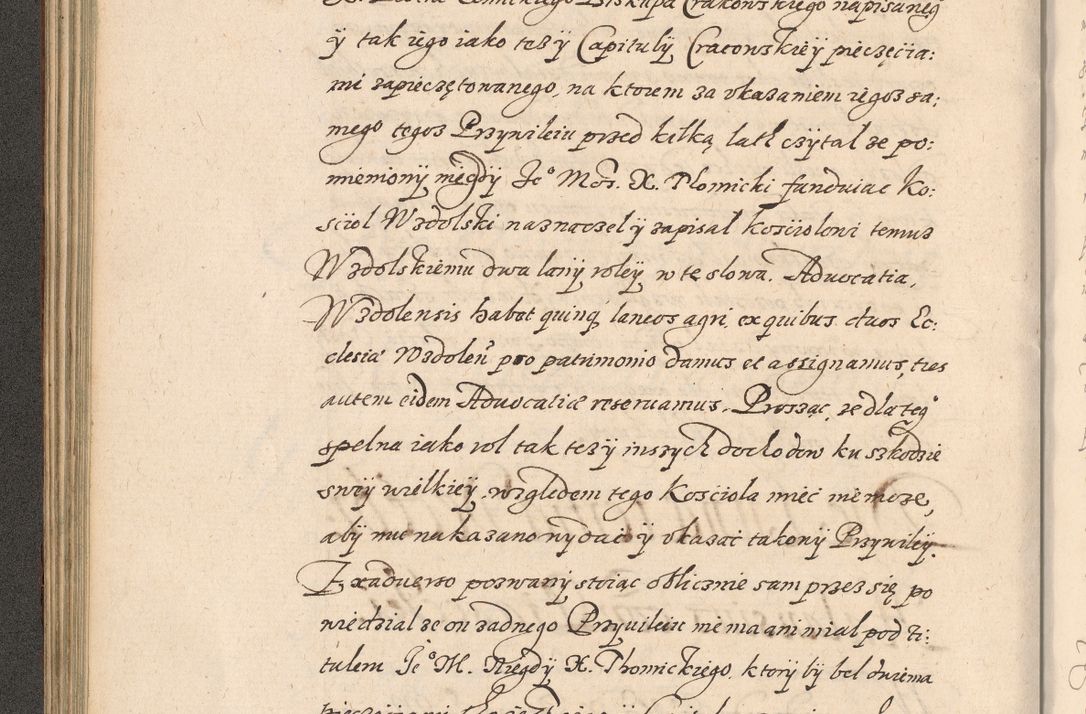 X. Piotra Tomickiego Biskupa Crakowskiego napisaneg
ÿ tak iego iako tesz ÿ Capitulÿ Cracowskieÿ pieczęcia:
mi zapieczętowanego, na ktorem za vkazaniem iegoz sa:
mego tegoz Przywileiu przed kilką lath czÿtal ze po:
mienionÿ niegdÿ Je° Mos. X. Thomicki funduiac Ko:
sciol Wzdolski naznaczel ÿ zapisal kosciolowi temuz
Wzdolskiemu dwa lanÿ roleÿ w te slowa. Aduocatia,
Wzdolensis habet quinq laneos agri, ex quibus duos Ec:
clesiæ Wzdolen pro patrimonio damus et assignamus, tres
autem eidem Aduocatiæ reseruamus. Prosząc, ze dla teg°
spelna iako rol tak tesz ÿ inszych dochodow ku szkodzie
swÿ wielkieÿ względem tego Kosciola miec nie moze,
abÿ mu nakazano wÿdac ÿ vkazac takowÿ Przywileÿ.
Ex aduerso pozwanÿ stoiąc oblicznie sam przez się, po
wiedzial ze on zadnego Przywileiu nie ma ani mial pod ti:
tulem Je° M. Niegdÿ X. Thomickiego, ktorÿ bÿ bel dwiema